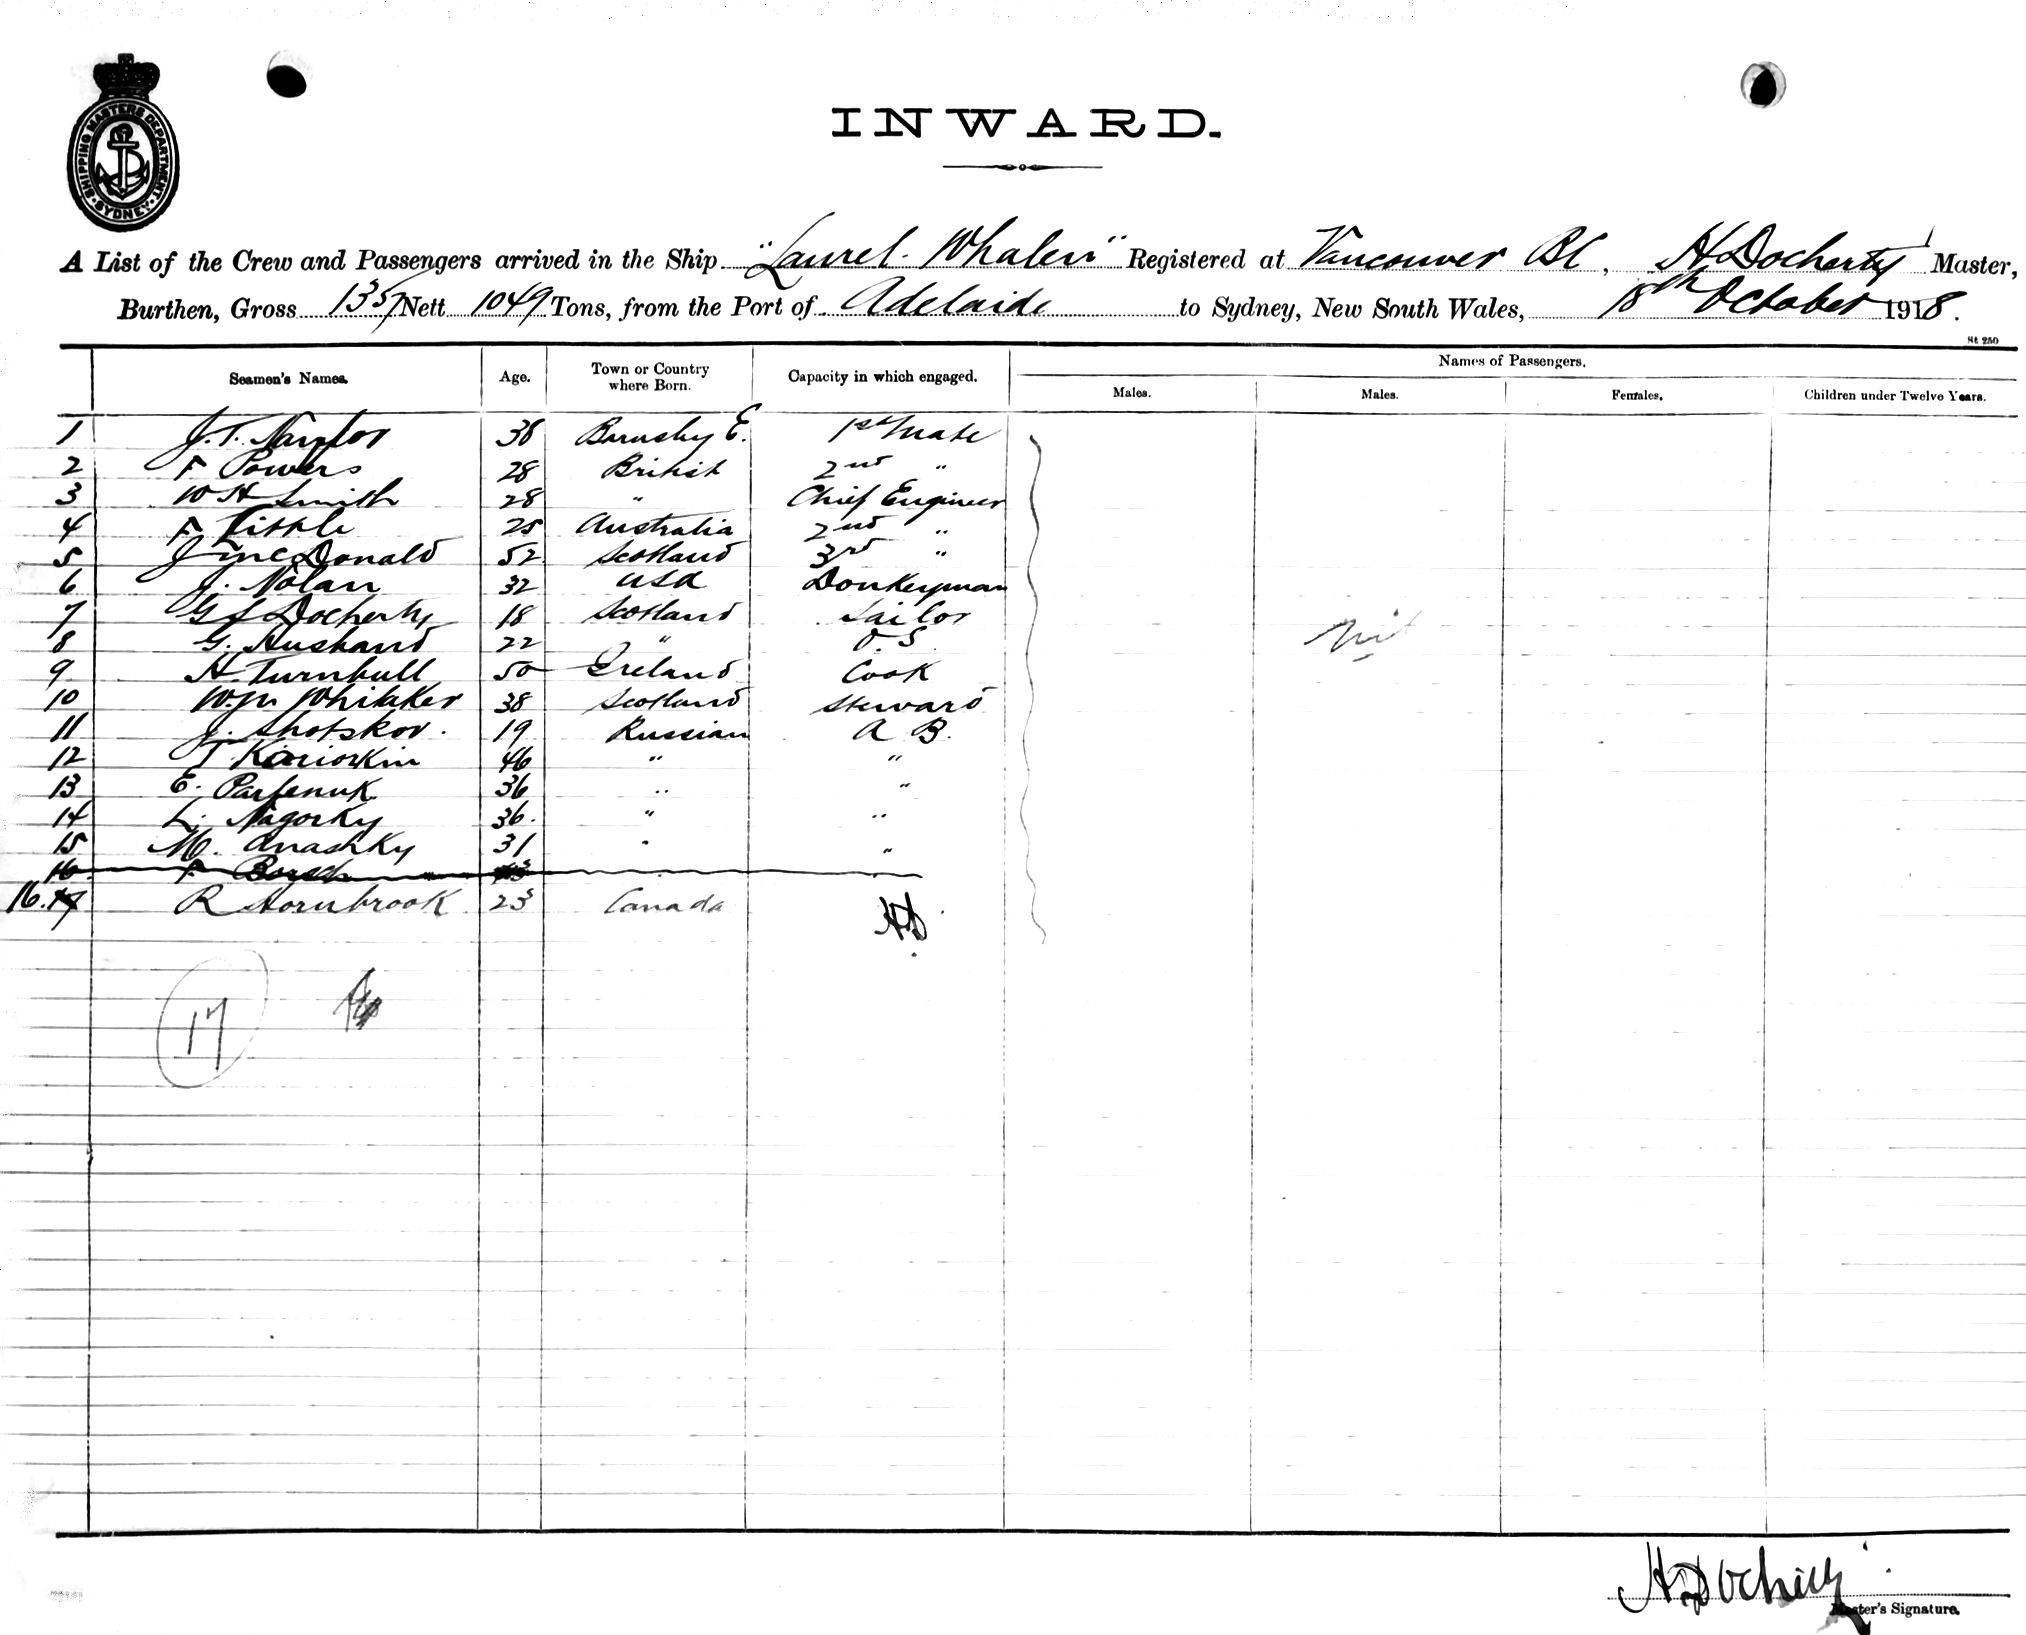 SHIPPING MASTERS DEPARTMENT · SYDNEY ·
INWARD.
A List of the Crew and Passengers arrived in the Ship "Laurel Whalen" Registered at Vancouver BC, H Docherty Master,
Burthen, Gross 1357 Nett 1049 Tons, from the Port of Adelaide to Sydney, New South Wales, 18th October 1918.
St 250
Seamen's Names. Age. Town or Country where Born. Capacity in which engaged. Names of Passengers.
Males. Males. Females. Children under Twelve Years.
1 J. T. Naylor 38 Barnsley E. 1st Mate
2 F Powers 28 British 2nd "
3 W H Smith 28 " Chief Engineer
4 F Little 25 Australia 2nd "
5 J McDonald 52 Scotland 3rd "
6 J. Nolan 32 USA Donkeyman
7 G S Docherty 18 Scotland Sailor
Nil
8 G. Husband 22 " O.S.
9 H Turnbull 50 Ireland Cook
10 W.M. Whitaker 38 Scotland Steward
11 J. Shotskov. 19 Russian A B.
12 T 46 " "
13 E. Parfenuk 36 " "
14 L. Nagorky 36. " "
15 M. Anashky 31 " "
16 F
16. 17 R Hornbrook 23 Canada HD.
17
H Docherty
Master's Signature.